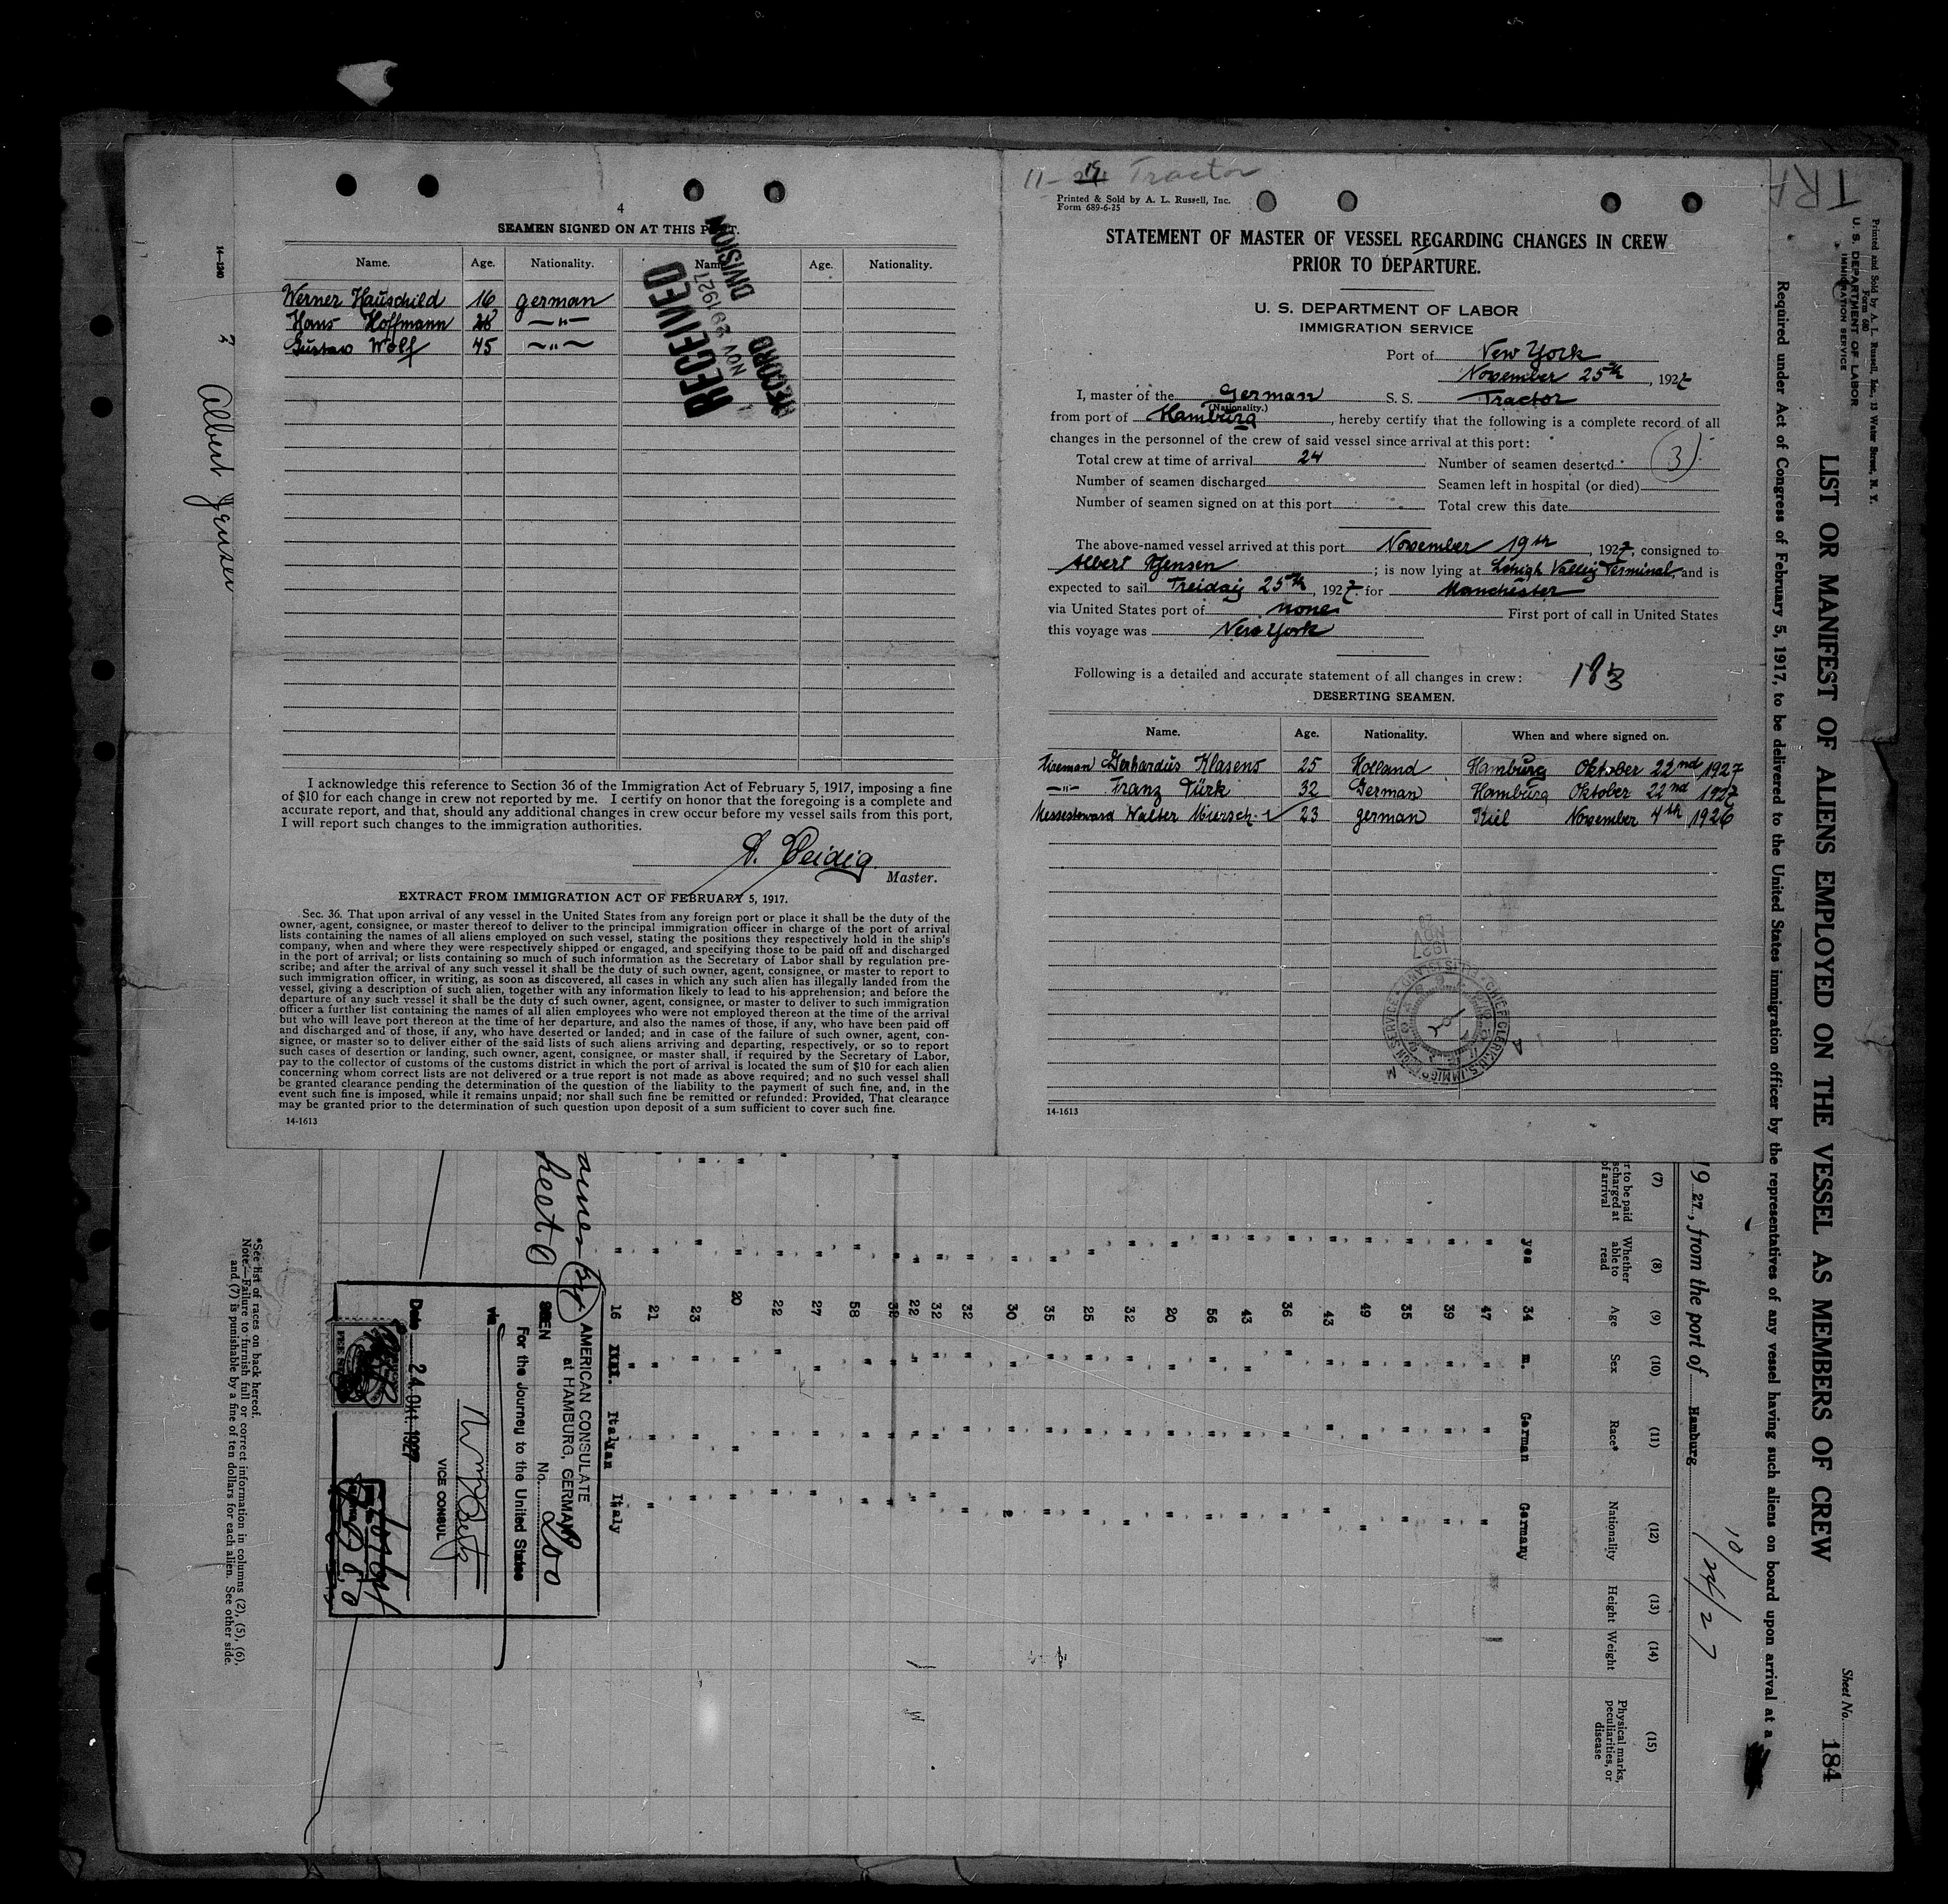 4
SEAMEN SIGNED ON AT THIS PORT.
Name. Age. Nationality. Name. Age. Nationality.
Werner Hauschild 16 german
Hans Hoffmann 28 —"—
Gustav Wolf 45 —"—
RECEIVED
NOV 29 1927
RECORD DIVISION
I acknowledge this reference to Section 36 of the Immigration Act of February 5, 1917, imposing a fine
of $10 for each change in crew not reported by me. I certify on honor that the foregoing is a complete and
accurate report, and that, should any additional changes in crew occur before my vessel sails from this port,
I will report such changes to the immigration authorities.
Master.
EXTRACT FROM IMMIGRATION ACT OF FEBRUARY 5, 1917.
Sec. 36. That upon arrival of any vessel in the United States from any foreign port or place it shall be the duty of the
owner, agent, consignee, or master thereof to deliver to the principal immigration officer in charge of the port of arrival
lists containing the names of all aliens employed on such vessel, stating the positions they respectively hold in the ship's
company, when and where they were respectively shipped or engaged, and specifying those to be paid off and discharged
in the port of arrival; or lists containing so much of such information as the Secretary of Labor shall by regulation pre-
scribe; and after the arrival of any such vessel it shall be the duty of such owner, agent, consignee, or master to report to
such immigration officer, in writing, as soon as discovered, all cases in which any such alien has illegally landed from the
vessel, giving a description of such alien, together with any information likely to lead to his apprehension; and before the
departure of any such vessel it shall be the duty of such owner, agent, consignee, or master to deliver to such immigration
officer a further list containing the names of all alien employees who were not employed thereon at the time of the arrival
but who will leave port thereon at the time of her departure, and also the names of those, if any, who have been paid off
and discharged and of those, if any, who have deserted or landed; and in case of the failure of such owner, agent, con-
signee, or master so to deliver either of the said lists of such aliens arriving and departing, respectively, or so to report
such cases of desertion or landing, such owner, agent, consignee, or master shall, if required by the Secretary of Labor,
pay to the collector of customs of the customs district in which the port of arrival is located the sum of $10 for each alien
concerning whom correct lists are not delivered or a true report is not made as above required; and no such vessel shall
be granted clearance pending the determination of the question of the liability to the payment of such fine, and, in the
event such fine is imposed, while it remains unpaid; nor shall such fine be remitted or refunded: Provided, That clearance
may be granted prior to the determination of such question upon deposit of a sum sufficient to cover such fine.
14-1613
11- 19 Tractor
Printed & Sold by A. L. Russell, Inc.
Form 689-6-25
STATEMENT OF MASTER OF VESSEL REGARDING CHANGES IN CREW
PRIOR TO DEPARTURE.
U. S. DEPARTMENT OF LABOR
IMMIGRATION SERVICE
Port of New York
November 25th, 1927
I, master of the German S. S. Tractor
(Nationality.)
from port of Hamburg, hereby certify that the following is a complete record of all
changes in the personnel of the crew of said vessel since arrival at this port:
Total crew at time of arrival 24 Number of seamen deserted (3)
Number of seamen discharged Seamen left in hospital (or died)
Number of seamen signed on at this port Total crew this date
The above-named vessel arrived at this port November 19th, 1927, consigned to
Albert Jensen; is now lying at Lehigh Valley Terminal, and is
expected to sail Freiday 25th, 1927 for Manchester
via United States port of none First port of call in United States
this voyage was New York
Following is a detailed and accurate statement of all changes in crew: 183
DESERTING SEAMEN.
Name. Age. Nationality. When and where signed on.
Fireman Gerhardus Klasens 25 Holland Hamburg Oktober 22nd 1927
—"— Franz Türk 32 German Hamburg Oktober 22nd 1927
Messesteward Walter Miersch 23 german Kiel November 4th 1926
14-1613
14-1240
Albert Jensen
TRA
Printed and Sold by A. L. Russell, Inc., 13 Water Street, N. Y.
Form 680
U. S. DEPARTMENT OF LABOR
IMMIGRATION SERVICE
Sheet No. 184
LIST OR MANIFEST OF ALIENS EMPLOYED ON THE VESSEL AS MEMBERS OF CREW
Required under Act of Congress of February 5, 1917, to be delivered to the United States immigration officer by the representatives of any vessel having such aliens on board upon arrival at a
19 27, from the port of Hamburg 10/24/27
(7) (8) (9) (10) (11) (12) (13) (14) (15)
Whether able to read Age Sex Race* Nationality Height Weight Physical marks, peculiarities, or disease
yes 34 m. German Germany
" 47 " " "
" 39 " " "
" 35 " " "
" 49 " " "
" 43 " " "
" 36 " " "
" 43 " " "
" 56 " " "
" 20 " " "
" 32 " " "
" 25 " " "
" 35 " " "
" 30 " " "
" 32 " " "
" 32 " " "
" 22 " " "
" 58 " " "
" 27 " " "
" 22 " " "
" 20 " " "
" 23 " " "
" 21 " " "
" 16 " Italian Italy
AMERICAN CONSULATE
at HAMBURG, GERMANY
SEEN No. 200
For the Journey to the United States
via
VICE CONSUL
Date 24. Okt. 1927
*See list of races on back hereof.
Note.—Failure to furnish full or correct information in columns (2), (5), (6),
and (7) is punishable by a fine of ten dollars for each alien. See other side.